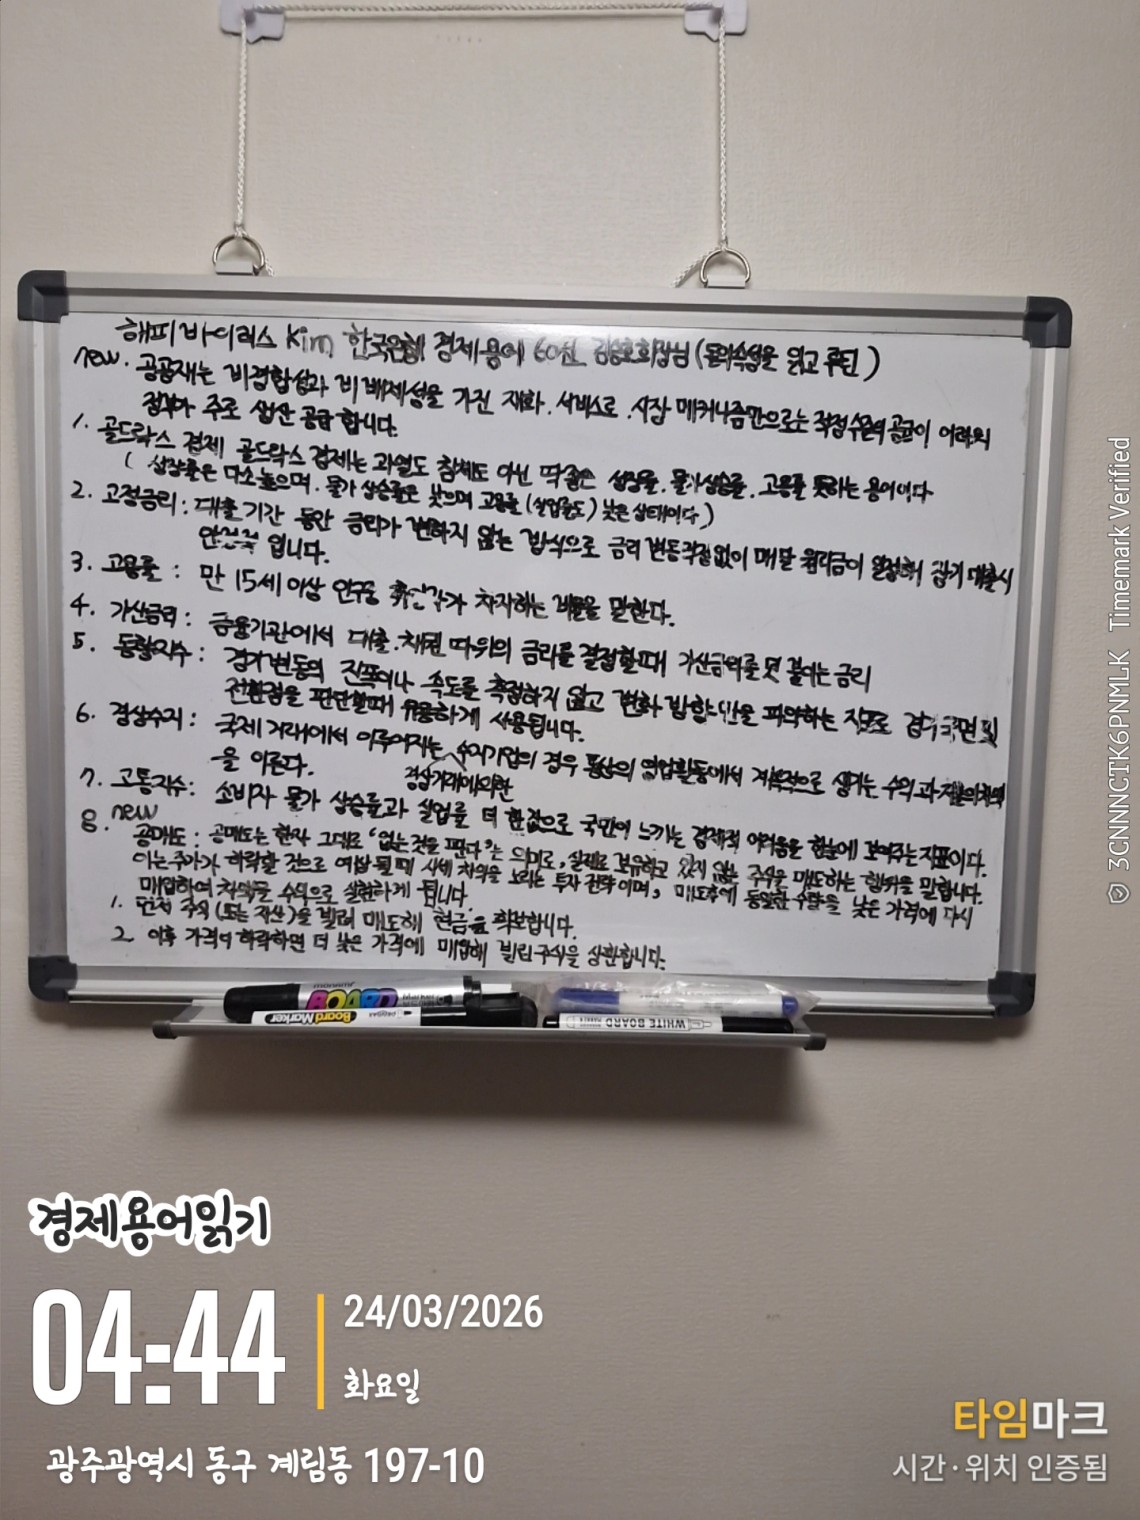 해피바이러스 Kim 한국은행 경제용어 60선 김승호회장님 (돈의속성을 읽고 루틴)
new. 공공재는 비경합성과 비배제성을 가진 재화. 서비스로. 시장 메커니즘만으로는 적정수준의 공급이 어려워
정부가 주로 생산 공급합니다.
1. 골드락스 경제 골드락스 경제는 과열도 침체도 아닌 딱좋은 성장률. 물가상승률. 고용률 뜻하는 용어이다
( 성장률은 다소높으며. 물가 상승률은 낮으며 고용률 (실업률도) 낮은 상태이다)
2. 고정금리 : 대출기간 동안 금리가 변하지 않는 방식으로 금리 변동걱정없이 매달 원리금이 일정해 장기 대출시
입니다.
3. 고용률 : 만 15세 이상 인구중 가 차지하는 비율을 말한다.
4. 가산금리 : 금융기관에서 대출. 채권 따위의 금리를 결정할때 가산금리를 덧 붙이는 금리
5. 동행지수 : 경기변동의 진폭이나 속도를 측정하지 않고 변화 방향만을 파악하는 지표로 경기국면 및
전환점을 판단할때 유용하게 사용됩니다.
6. 경상수지 : 국제 거래에서 이루어지는 수지기업의 경우 통상의 영업활동에서 계속적으로 생기는 수입과
을 이른다. 경상거래에의한
7. 고통지수 : 소비자 물가 상승률과 실업률 더 한값으로 국민이 느끼는 경제적 어려움을 한눈에 보여주는지표이다.
8. new
공매도 : 공매도는 한자 그대로 "없는 것을 판다"는 의미로, 실제로 보유하고 있지 않는 주식을 매도하는 행위를 말합니다.
이는 주가가 하락할 것으로 예상 될때 시세 차익을 노리는 투자 전략이며, 매도후에 동일한 수량을 낮은 가격에 다시
매입하여 차익을 수익으로 실현하게 됩니다.
1. 먼저 주식 (또는 자산)을 빌려 매도해 현금을 확보합니다.
2. 이후 가격이 하락하면 더 낮은 가격에 매입해 빌린주식을 상환합니다.
BoardMarker
WHITE BOARD
경제용어읽기
04:44
24/03/2026
화요일
광주광역시 동구 계림동 197-10
타임마크
시간·위치 인증됨
3CNNCTK6PNMLK Timemark Verified